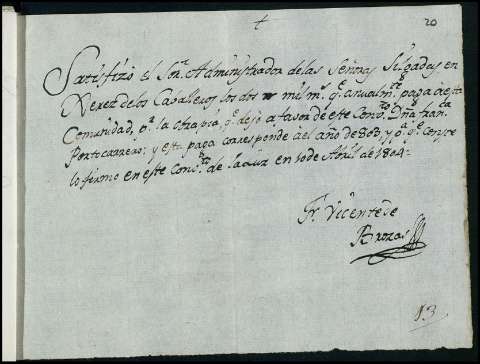 +
20
Satisfizo el Sor. Administrador de las Señoras Silgadas en
Xerez de los Cavalleros los dos mil mrs. qe. anualmte. paga a esta
Comunidad, pr. la obra pia, qe. dejó a favor de este Convto. Dña. Franca.
Portocarrero: y esta paga corresponde a el año de 803, y pa. qe. conste
lo firmo en este Convto. de la Luz en 10 de Abril de 1804=
Fr. Vicente de
Brozas
13